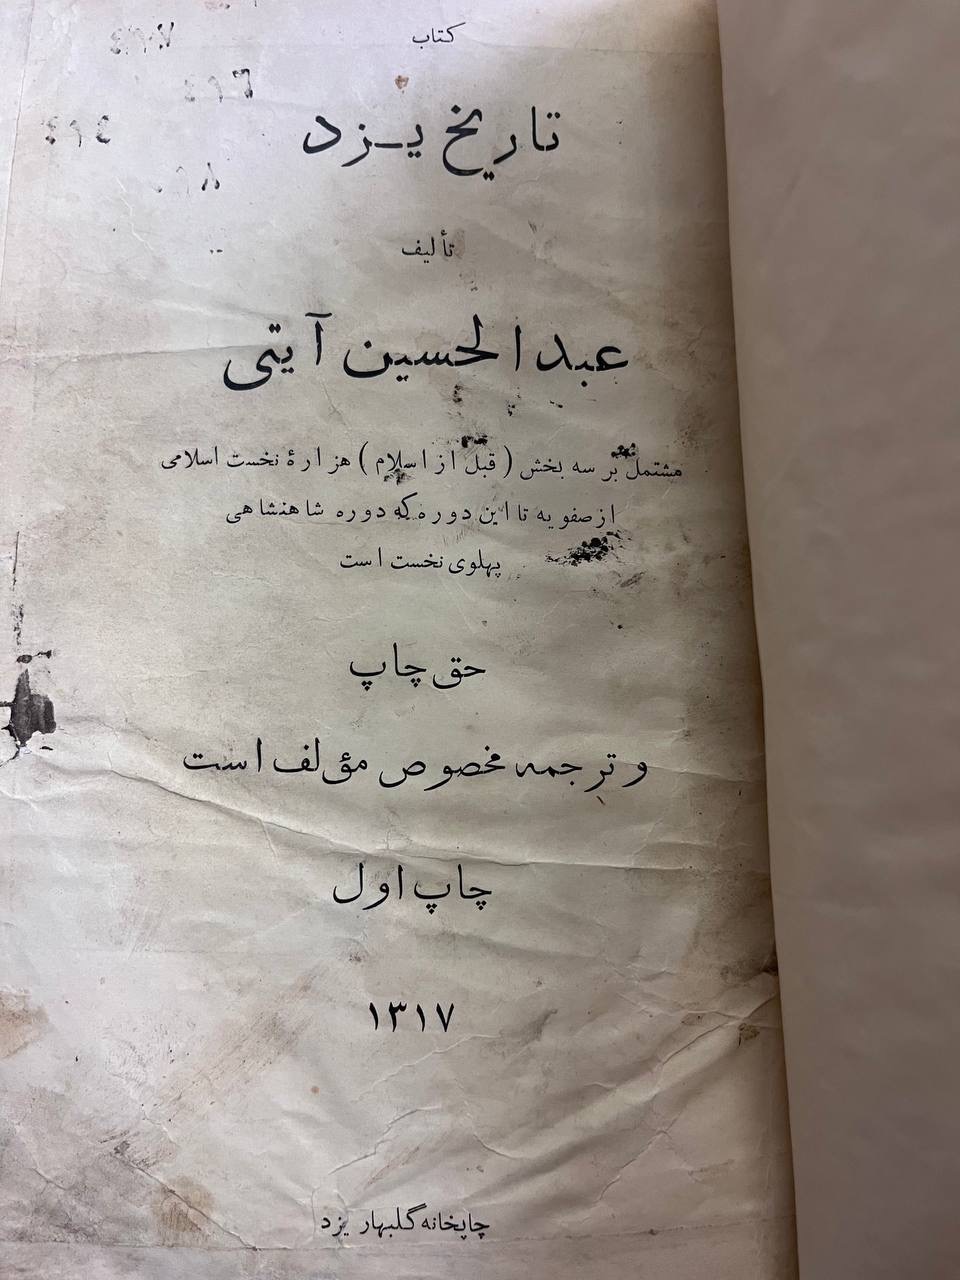 کتاب
تاریخ یزد
تألیف
عبدالحسین آیتی
مشتمل بر سه بخش ( قبل از اسلام ) هزارهٔ نخست اسلامی
از صفویه تا این دوره که دوره شاهنشاهی
پهلوی نخست است
حق چاپ
و ترجمه مخصوص مؤلف است
چاپ اول
۱۳۱۷
چاپخانه گلبهار یزد